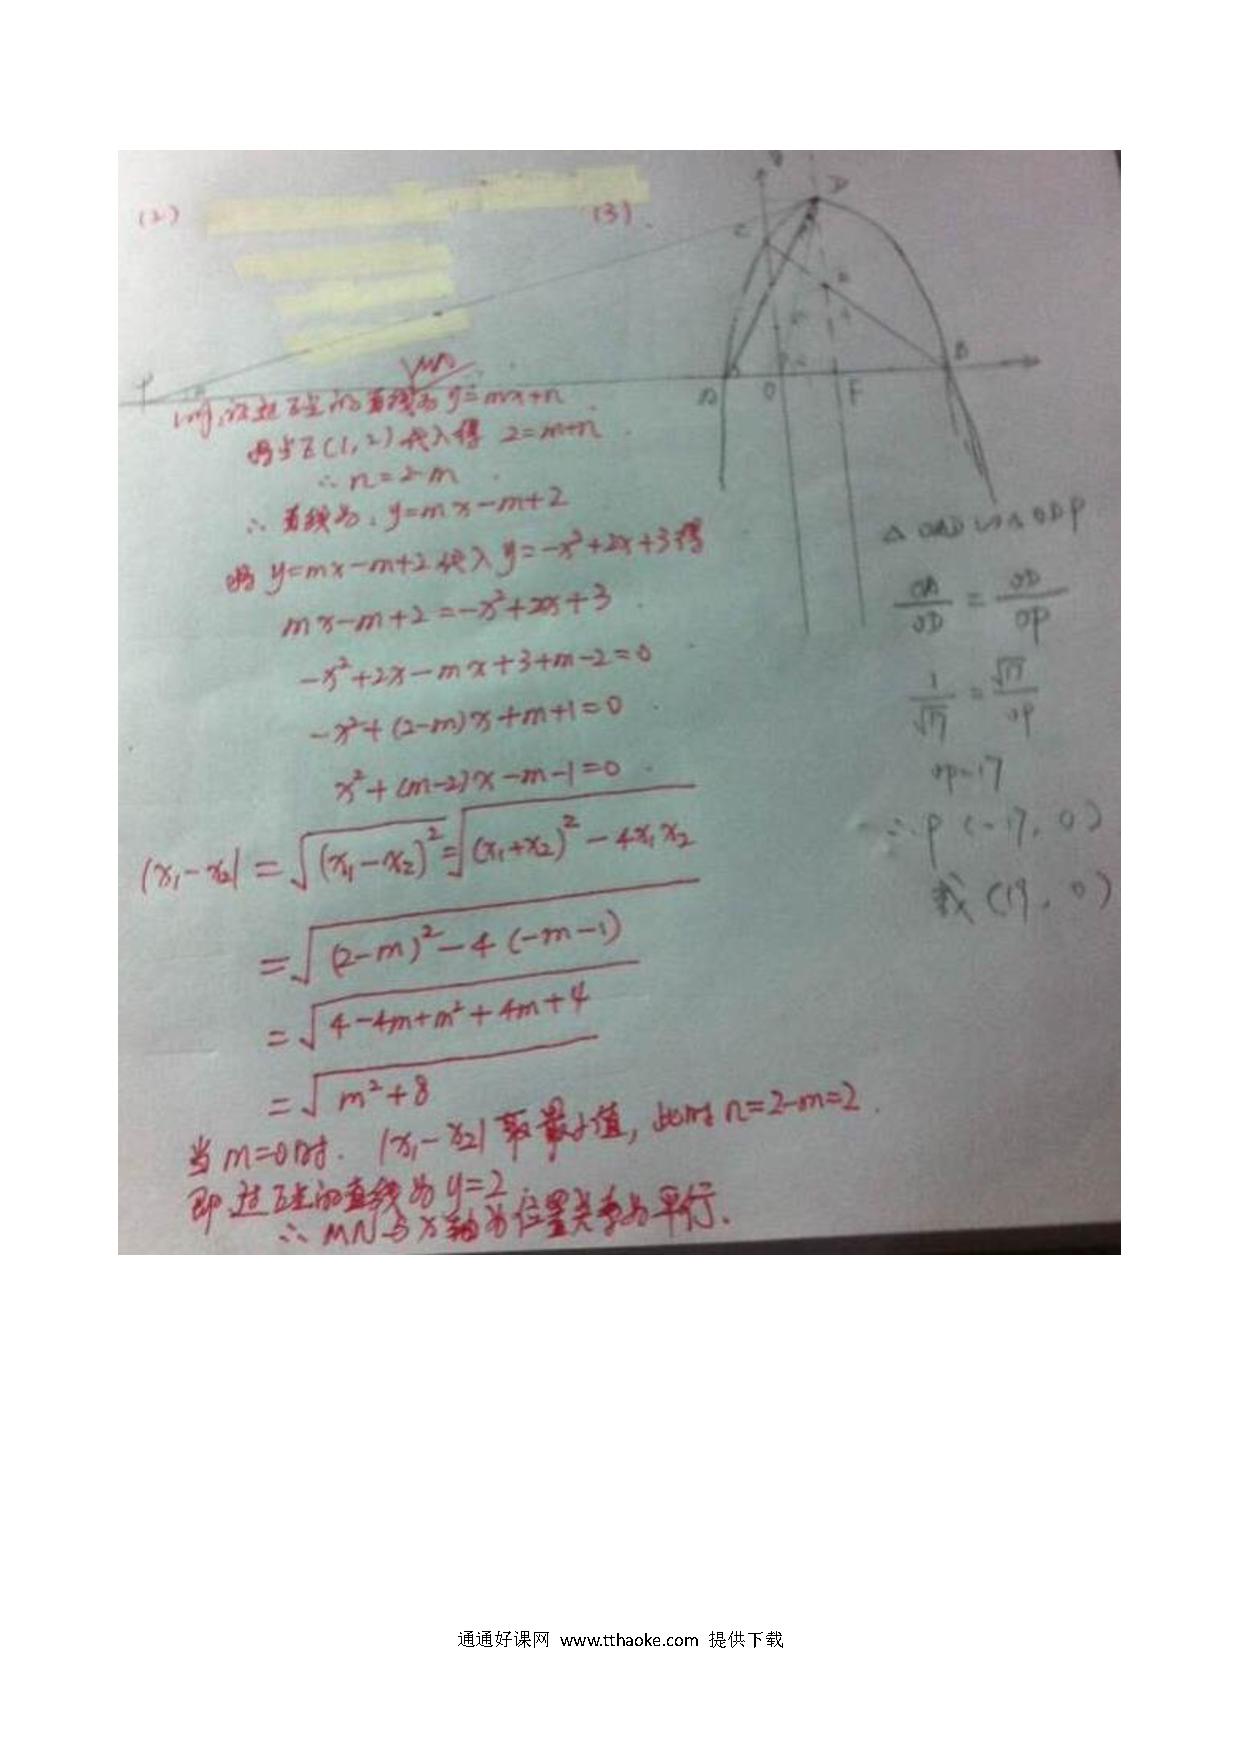 (2)
(3)
C
D
B
O
F
P
设过E点的直线为y=mx+n
将点E(1,2)代入得 2=m+n.
∴n=2-m
∴直线为:y=mx-m+2
将y=mx-m+2代入y=-x²+2x+3得
mx-m+2=-x²+2x+3
-x²+2x-mx+3+m-2=0
-x²+(2-m)x+m+1=0
x²+(m-2)x-m-1=0
|x₁-x₂|=√(x₁-x₂)²=√(x₁+x₂)²-4x₁x₂
=√(2-m)²-4(-m-1)
=√4-4m+m²+4m+4
=√m²+8
当m=0时.|x₁-x₂|取最小值,此时n=2-m=2.
即过E点的直线为y=2
∴MN与x轴的位置关系为平行.
△OAD∽△ODP
OA/OD=OD/OP
1/√17=√17/OP
OP=17
∴P(-17,0)
或(17,0)
通通好课网 www.tthaoke.com 提供下载